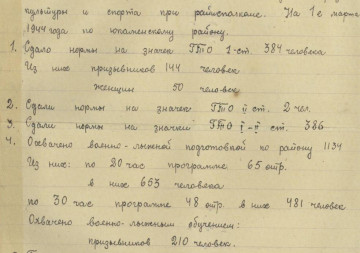 культуры и спорта при райисполкоме. На 1е марта
1944 года по Юкаменскому району.
1. Сдало нормы на значок ГТО 1-ст. 384 человека
Из них призывников 144 человек
женщин 50 человек
2. Сдали нормы на значок ГТО II ст. 2 чел.
3. Сдали нормы на значки ГТО I-II ст. 386
4. Охвачено военно-лыжной подготовкой по району 1134
Из них: по 20 час программе 65 отр.
в них 653 человека
по 30 час программе 48 отр. в них 481 человек
Охвачено военно-лыжным обучением:
призывников 210 человек.